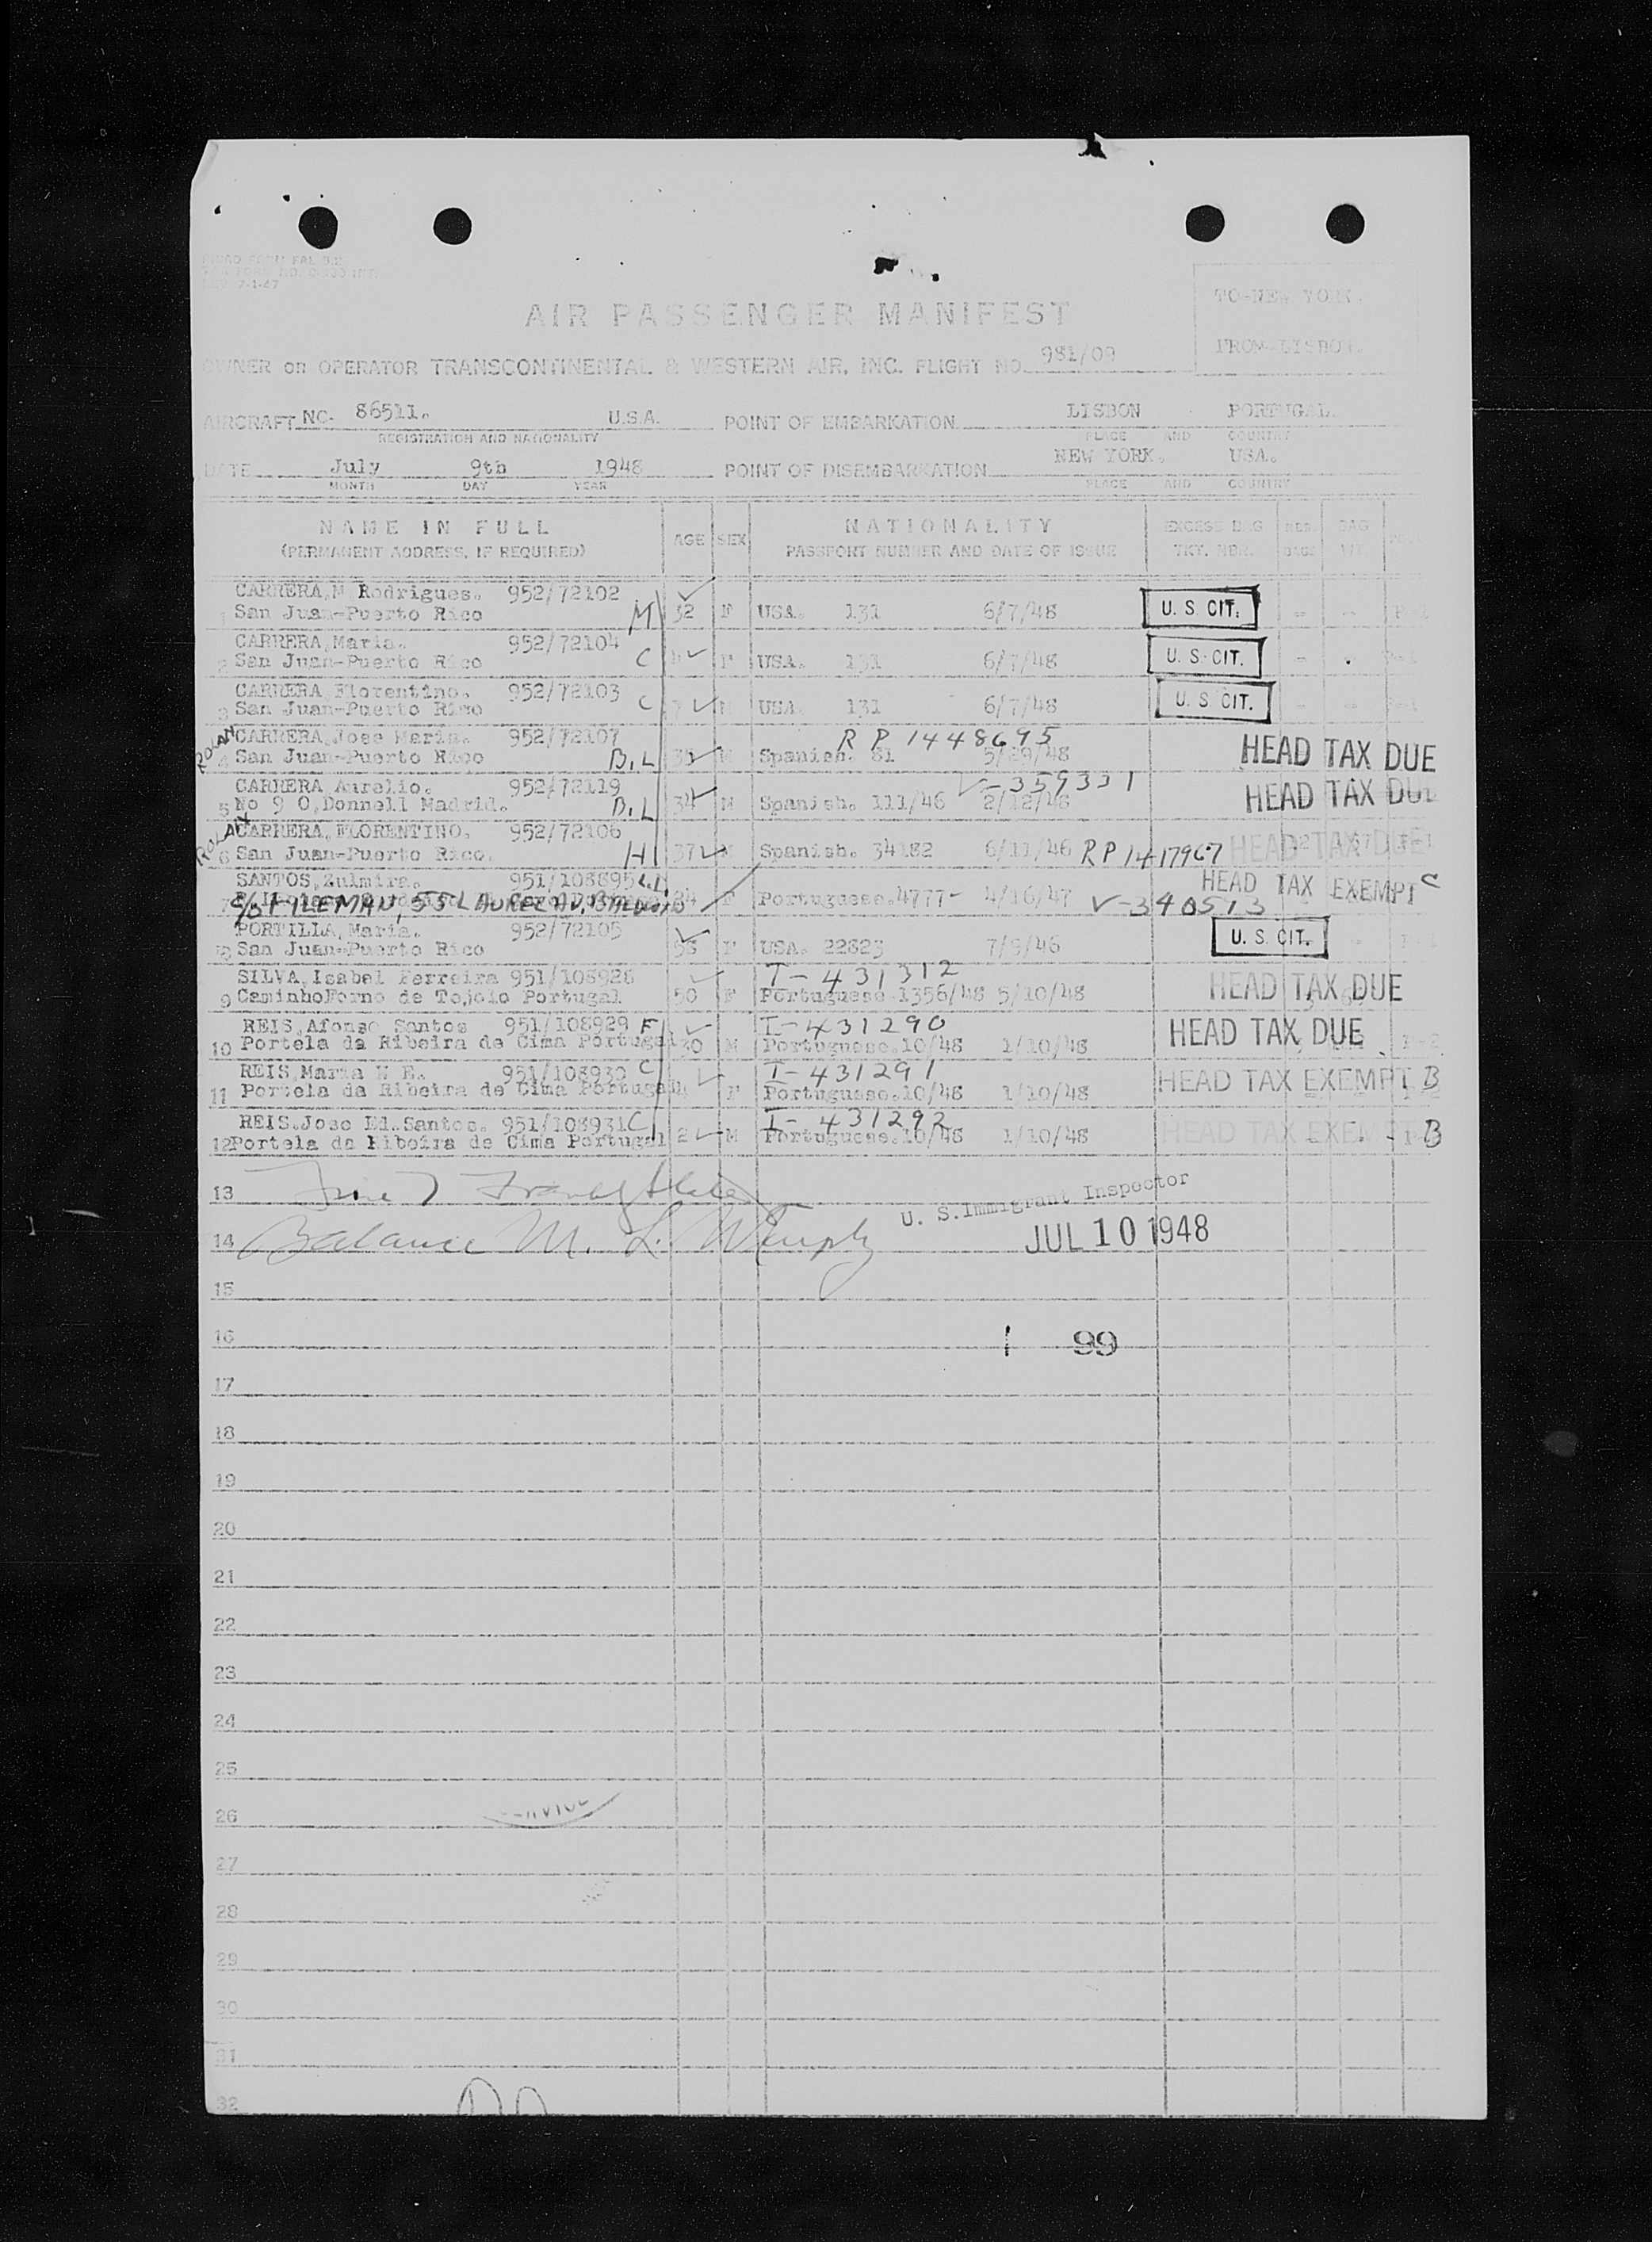 7-1-47
TO-NEW YORK.
AIR PASSENGER MANIFEST
FROM-LISBON.
OWNER OR OPERATOR TRANSCONTINENTAL & WESTERN AIR, INC. FLIGHT NO. 981/09
AIRCRAFT NC- 86511. U.S.A. POINT OF EMBARKATION LISBON PORTUGAL.
REGISTRATION AND NATIONALITY PLACE AND COUNTRY
DATE July 9th 1948 POINT OF DISEMBARKATION NEW YORK. USA.
MONTH DAY YEAR PLACE AND COUNTRY
NAME IN FULL AGE SEX NATIONALITY EXCESS BAG BAG
(PERMANENT ADDRESS, IF REQUIRED) PASSPORT NUMBER AND DATE OF ISSUE TKT. NBR. BAGS WT.
CARRERA, M Rodrigues. 952/72102
1 San Juan-Puerto Rico M 32 F USA. 131 6/7/48 U. S. CIT.
CARRERA, Maria. 952/72104
2 San Juan-Puerto Rico C F USA. 131 6/7/48 U. S. CIT.
CARRERA Florentino. 952/72103
3 San Juan-Puerto Rico C 7 M USA 131 6/7/48 U. S. CIT.
ROLAN CARRERA, Jose Maria. 952/72107 R P 1448695
4 San Juan-Puerto Rico B.L 35 M Spanish. 81 5/29/48 HEAD TAX DUE
CARRERA Aurelio. 952/72119 V-359331
5 No 9 O,Donnell Madrid. B.L 34 M Spanish. 111/46 2/12/48 HEAD TAX DUE
ROLAN CARRERA, FLORENTINO. 952/72106
6 San Juan-Puerto Rico. H 37 M Spanish. 34182 6/11/46 RP 1417967 HEAD TAX DUE
SANTOS, Zulmira. 951/108895 HEAD TAX EXEMPT C
7 c/o TILEMAN, 55 LAUREL AV, BALDWIN 34 F Portuguese. 4777- 4/16/47 V-340513
PORTILLA, Maria. 952/72105
8 San Juan-Puerto Rico 58 F USA. 22823 7/9/46 U. S. CIT.
SILVA, Isabel Ferreira 951/108928 I-431312
9 CaminhoForno de Tojolo Portugal 50 F Portuguese 1356/48 5/10/48 HEAD TAX DUE
REIS, Afonso Santos 951/108929 F I-431290
10 Portela da Ribeira de Cima Portugal 30 M Portuguese. 10/48 1/10/48 HEAD TAX DUE
REIS, Maria 951/108930 C I-431291
11 Portela da Ribeira de Cima Portugal 4 F Portuguese. 10/48 1/10/48 HEAD TAX EXEMPT B
REIS. Jose Ed. Santos. 951/108931 C I-431292
12 Portela da Ribeira de Cima Portugal 2 M Portuguese. 10/48 1/10/48 HEAD TAX EXEMPT B
13
U. S. Immigrant Inspector
14 Balance M. L. Murphy JUL 10 1948
15
16 99
17
18
19
20
21
22
23
24
25
26
27
28
29
30
31
32